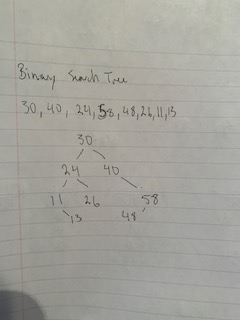 Binary Search Tree
30, 40, 24, 58, 48, 26, 11, 13
30
24 40
11 26 58
13 48